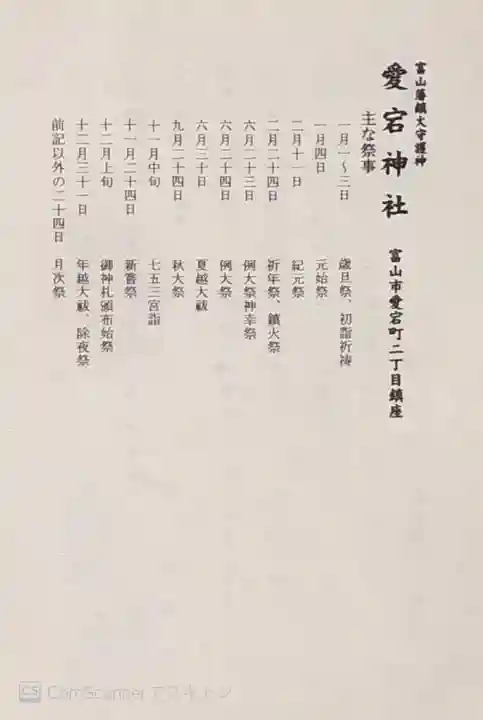 富山藩鎮火守護神
愛宕神社 富山市愛宕町二丁目鎮座
主な祭事
一月一〜三日 歳旦祭、初詣祈祷
一月四日 元始祭
二月十一日 紀元祭
二月二十四日 祈年祭、鎮火祭
六月二十三日 例大祭神幸祭
六月二十四日 例大祭
六月三十日 夏越大祓
九月二十四日 秋大祭
十一月中旬 七五三宮詣
十一月二十四日 新嘗祭
十二月上旬 御神札頒布始祭
十二月三十一日 年越大祓、除夜祭
前記以外の二十四日 月次祭
CS CamScanner でスキャン